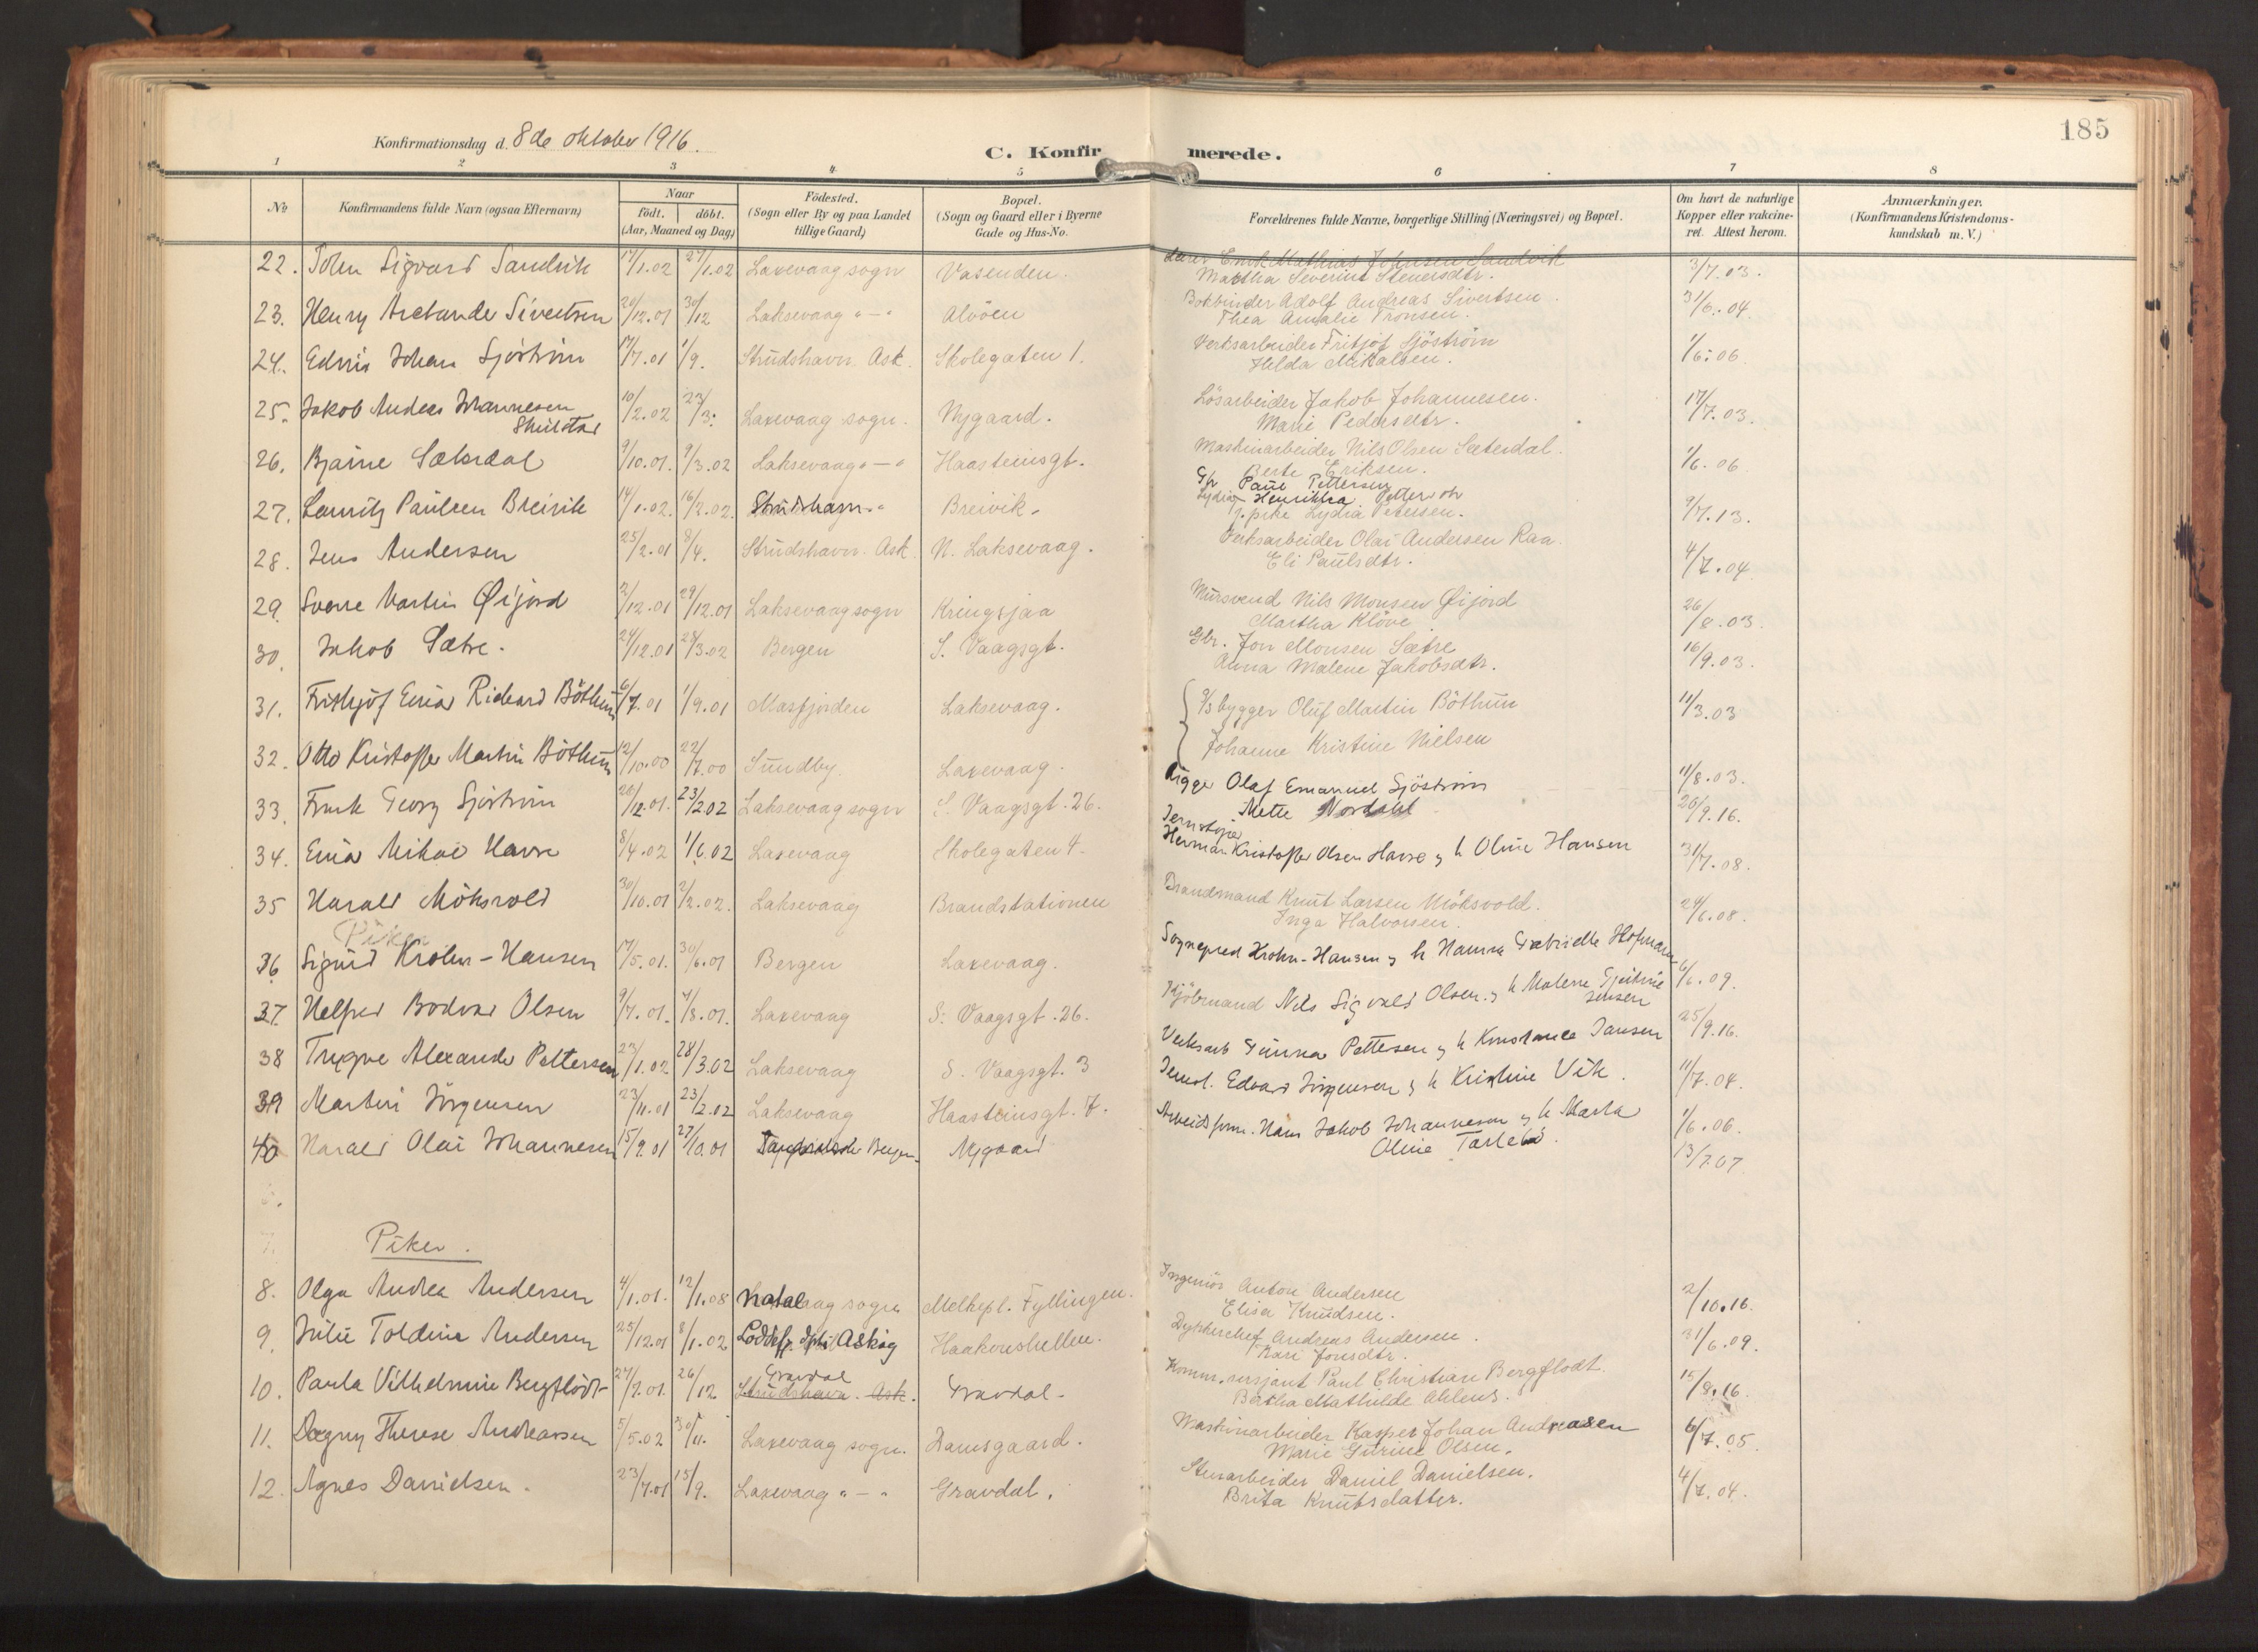 185
Konfirmationsdag d. 8de oktober 1916.
C. Konfirmerede.
1 2 3 4 5 6 7 8
No
Konfirmandens fulde Navn (ogsaa Efternavn)
Naar
födt. döbt.
(Aar, Maaned og Dag)
Födested.
(Sogn eller By og paa Landet
tillige Gaard)
Bopæl.
(Sogn og Gaard eller i Byerne
Gade og Hus-No.
Forældrenes fulde Navne, borgerlige Stilling (Næringsvei) og Bopæl.
Om havt de naturlige
Kopper eller vakcine-
ret. Attest herom.
Anmærkninger.
(Konfirmandens Kristendoms-
kundskab m. V.)
22. John Sigvard Sandvik 17/1.02 27/1.02 Laxevaag sogn Vasenden. Mathias Johnsen Sandvik 3/7.03.
Martha Severine Steuersdtr.
23. Henry Sivertsen 20/12.01 30/12 Laksevaag "—" Alvöen Bokbinder Adolf Andreas Sivertsen. 31/6.04.
Thea Amalie Tronsen.
24. Johan Sjöström 17/7.01 1/9. Strudshavn. Ask. Skolegaten 1. Verksarbeider Fritjof Sjöström 1/6.06.
Hilda Mikalsen.
25. Jakob Anders Johannesen 10/2.02 23/3. Laxevaag sogn. Nygaard. Lösarbeider Jakob Johannesen. 17/7.03.
Marie Pedersdtr.
26. Bjarne Sæterdal 9/10.01. 9/3.02 Laksevaag "—" Haasteinsgt. Maskinarbeider Nils Olsen Sæterdal. 1/6.06
Berte Eriksen.
27. Lauritz Paulsen Breivik 14/1.02. 16/2.02. Strudshavn Breivik. Paul Pettersen
Lydia Henrikka
p. pike Lydia Petersen. 9/7.13.
28. Jens Andersen 25/2.01 8/4. Strudshavn. Ask. N. Laksevaag. Verksarbeider Olai Andersen Raa. 4/7.04
Eli Paulsdtr.
29. Sverre Martin Øijord 2/12.01 29/12.01 Laksevaag sogn Kringsjaa Mursvend Nils Monsen Øijord 26/8.03.
Martha Klöve
30. Jakob Sætre. 24/12.01 28/3.02 Bergen S. Vaagsgt. Gbr. Jon Monsen Sætre 16/9.03.
Anna Malene Jakobsdtr.
31. Frithjof Einar Rickard Böthun 6/7.01 1/9.01 Masfjorden Laksevaag. bygger Oluf Martin Böthun 11/3.03
32. Otto Kristoffer Martin Böthun 12/10.00 22/7.00 Sundby. Laxevaag. Johanne Kristine Nielsen 11/8.03.
33. Frank Georg Sjöström 20/12.01. 23/2.02 Laksevaag sogn S. Vaagsgt. 26. Rigger Olaf Emanuel Sjöström 20/9.16.
Mette Nordahl
34. Einar Mikal Havre 8/4.02 1/6.02 Laxevaag Skolegaten 4. Herman Kristoffer Olsen Havre og h Oline Hansen 31/7.08.
35 Harald Möksvold 30/10.01 2/2.02. Laksevaag Brandstationen Brandmand Knut Larsen Möksvold. 24/6.08.
Inga Halvorsen.
Piker
36. Sigurd Krohn-Hansen 17/5.01. 30/6.01 Bergen Laxevaag. Sognepræst Krohn-Hansen og h Hanna Gabrielle Hofmann 6/6.09.
37. Helfred Bodvar Olsen 9/7.01. 4/8.01. Laxevaag S. Vaagsgt. 26. Kjöbmand Nils Sigvald Olsen og h Malene Jensen 25/9.16.
38 Trygve Alexander Pettersen 23/1.02. 28/3.02 Laksevaag S. Vaagsgt. 3 Verksarb Gunnar Pettersen og h Konstance Jansen 11/7.04.
39 Martin Jörgensen 23/11.01 23/2.02 Laksevaag Haasteinsgt. 7. Edvard Jörgensen og h Kristine Vik. 1/6.06.
40 Harald Olai Johannesen 15/9.01 27/10.01 Bergen. Nygaard Arbeidsform. Hans Jakob Johannesen og h Marta 13/7.07
Oline
Piker.
8. Olga Andrea Andersen 4/1.01. 12/1.08 Natal Melkepl. Fyllingen. Ingeniör Anton Andersen 2/10.16.
Elisa Knudsen.
9. Julie Toldine Andersen 25/12.01 8/1.02 Askøy Haakonshellen. Dykkerchef Andreas Andersen. 31/6.09.
Kari Jonsdtr.
10. Paula Vilhelmine Bergflödt 27/7.01. 26/12 Gravdal Strudshavn. Ask. Gravdal. Komm. sersjant Paul Christian Bergflödt. 15/8.16.
Bertha Mathilde Ahlens.
11. Dagny Therese Andreassen 5/5.02 30/11. Laxevaag sogn. Damsgaard. Maskinarbeider Kasper Johan Andreasen 6/7.05.
Marie Gurine Olsen.
12. Agnes Danielsen. 23/7.01 15/9. Laxevaag "—" Gravdal. Stenarbeider Daniel Danielsen. 4/7.04.
Brita Knutsdatter.